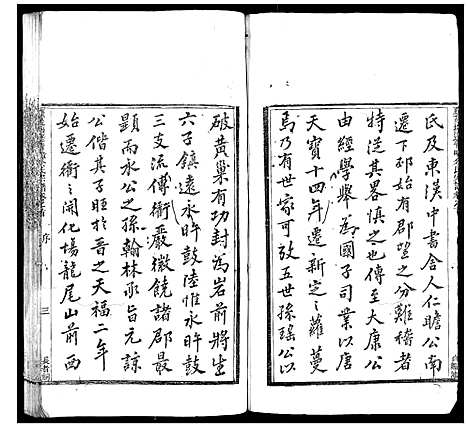 氏及東漢中書舍人仁瞻公南
遷下邳始有郡望之分難稽者
特從其畧慎之也傳至大康公
由經學舉為國子司業以唐
天寶十四年遷新定之蘿蔓
焉乃有世家可放五世孫瑤公以
破黃巢有功封為岩前將生
六子鎮遠永旿鼓陸惟永旿鼓
三支流傳衢嚴徽饒諸郡最
顯而永公之孫翰林承旨元諒
公偕其子旺於晋之天福二年
始遷衢之開化場龍尾山前西
序
三
長者祠